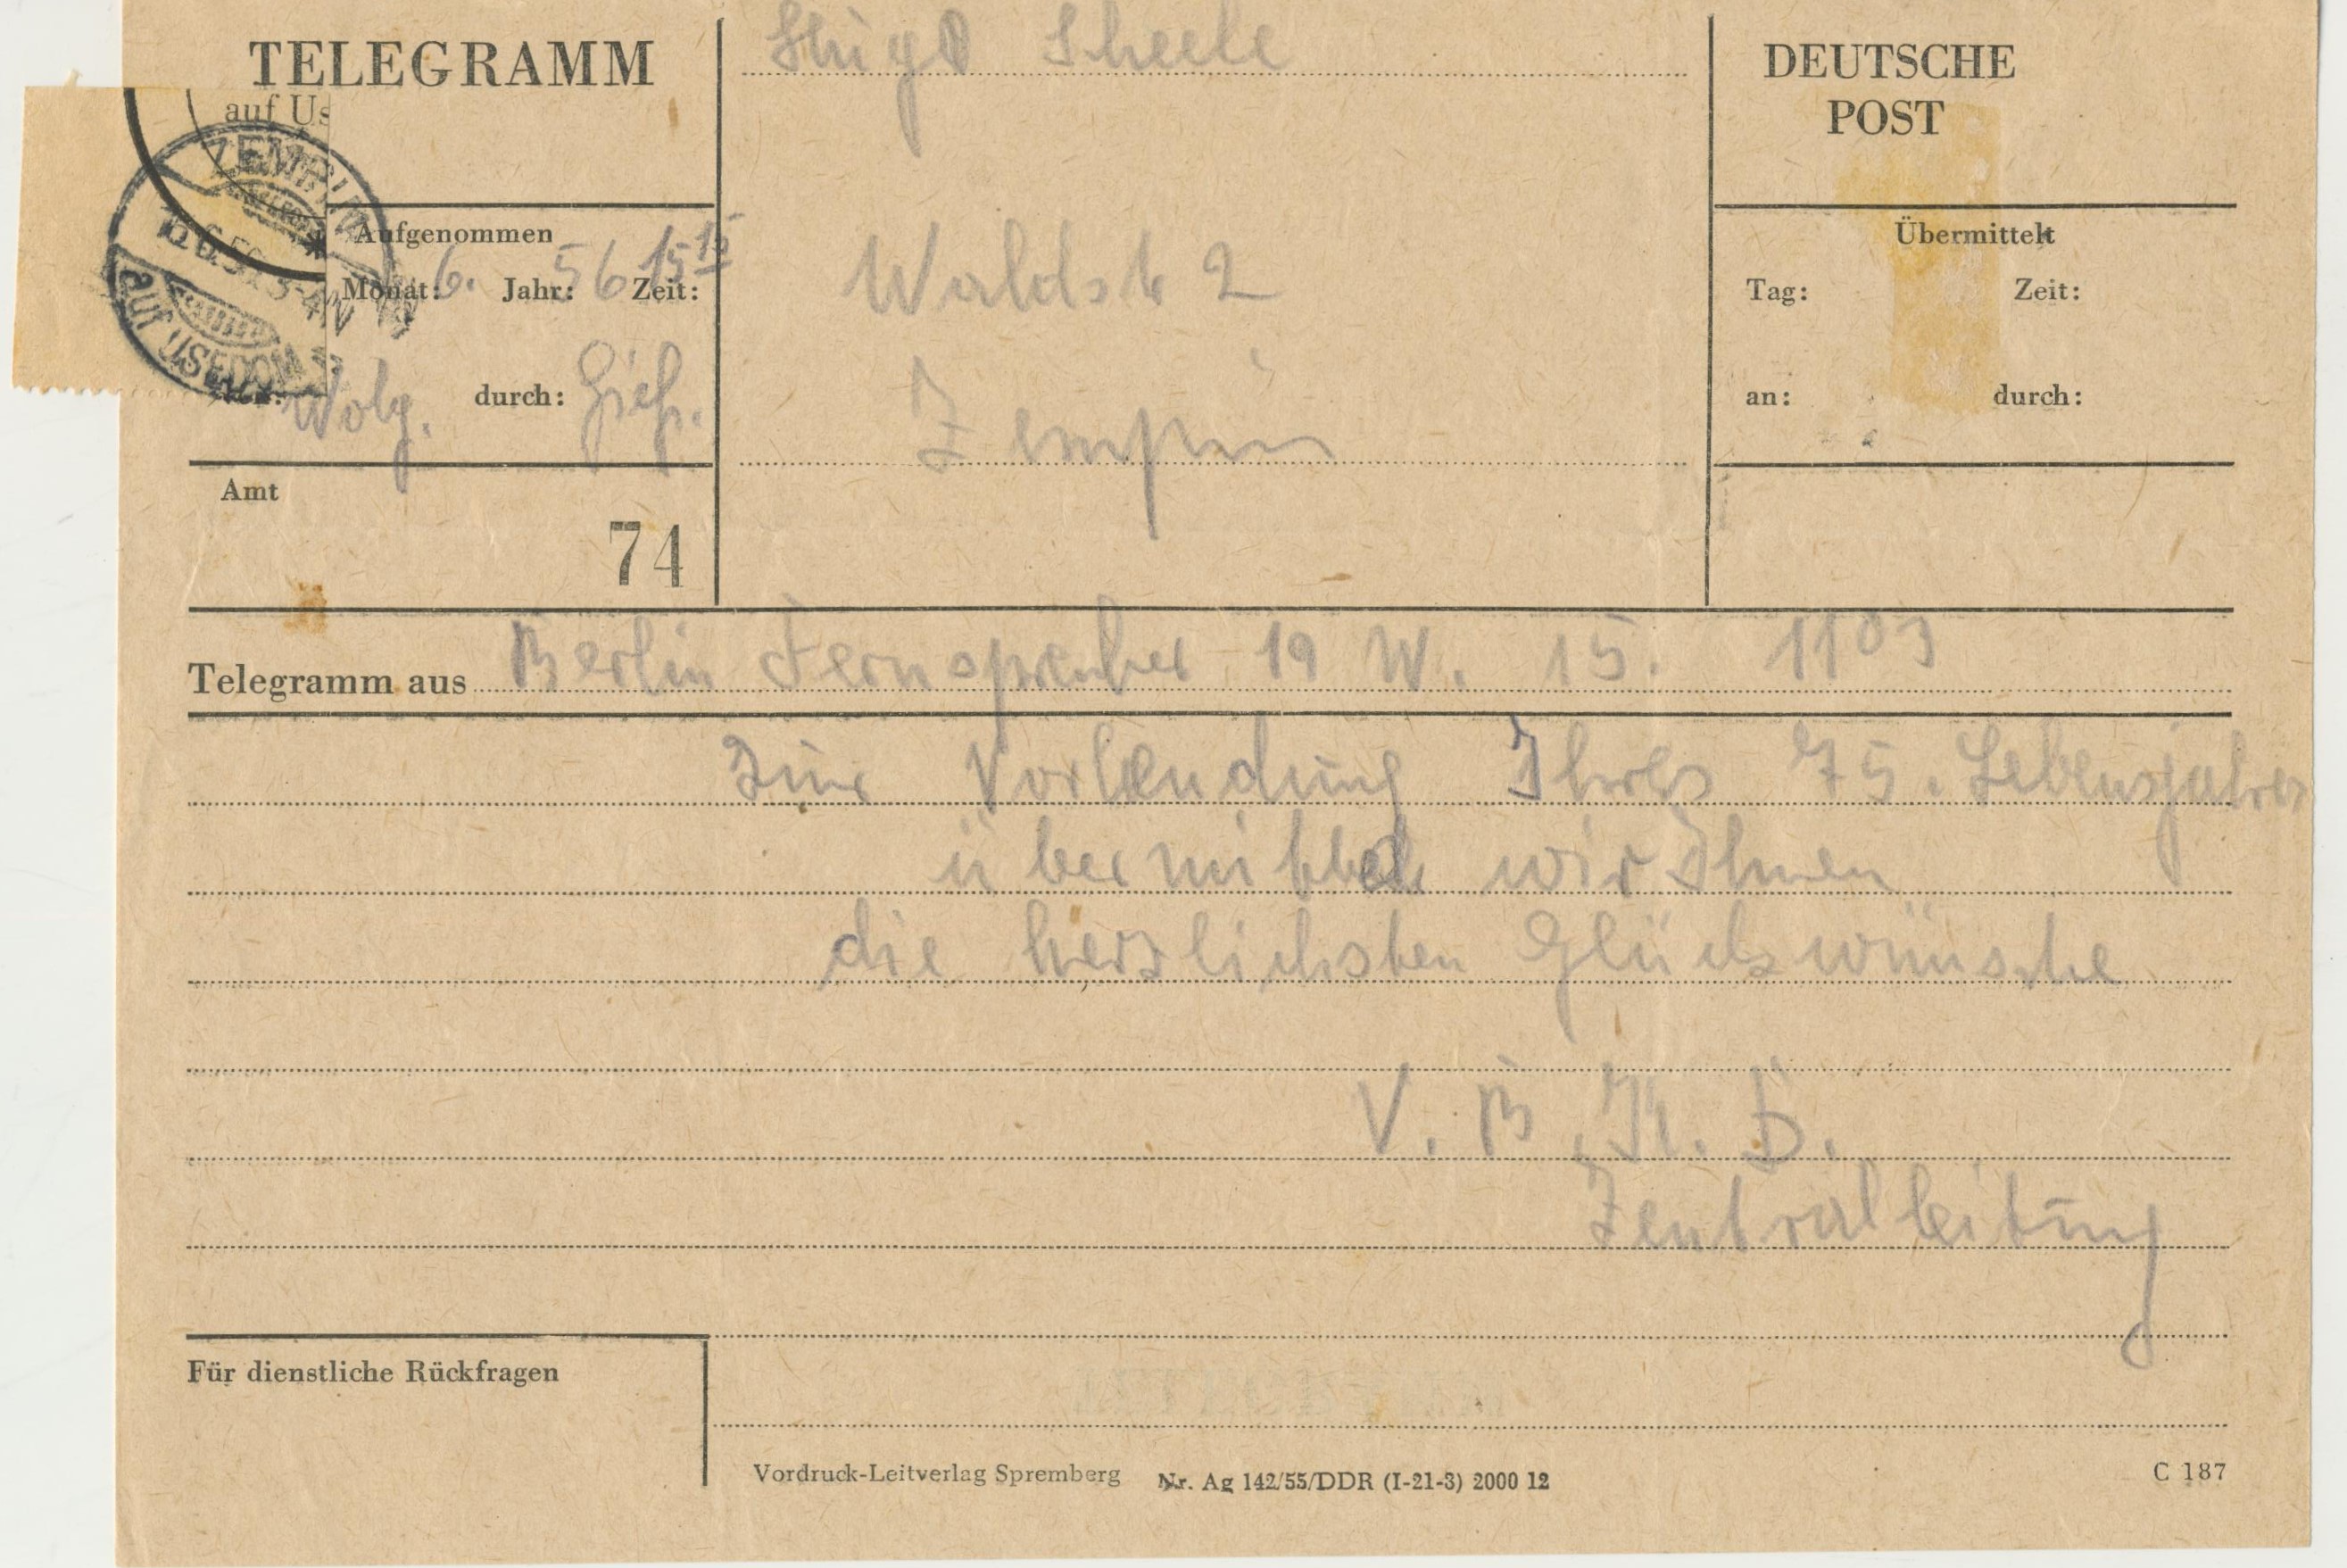 TELEGRAMM
auf Us
ZEMPIN
auf USEDOM
Hugo Scheele
Waldstr 2
Zempin
DEUTSCHE
POST
Aufgenommen
Monat: 6. Jahr: 56 Zeit: 15 15
Wolg. durch:
Amt
74
Übermittelt
Tag: Zeit:
an: durch:
Telegramm aus Berlin Fernsprecher 19 W. 15. 1103
Zur Vorlendung Ihres 75. Lebensjahres
übermitteln wir Ihnen
die herzlichsten Glückwünsche
V. B. K. D.
Zentralleitung
Für dienstliche Rückfragen
Vordruck-Leitverlag Spremberg Nr. Ag 142/55/DDR (I-21-3) 2000 12
C 187